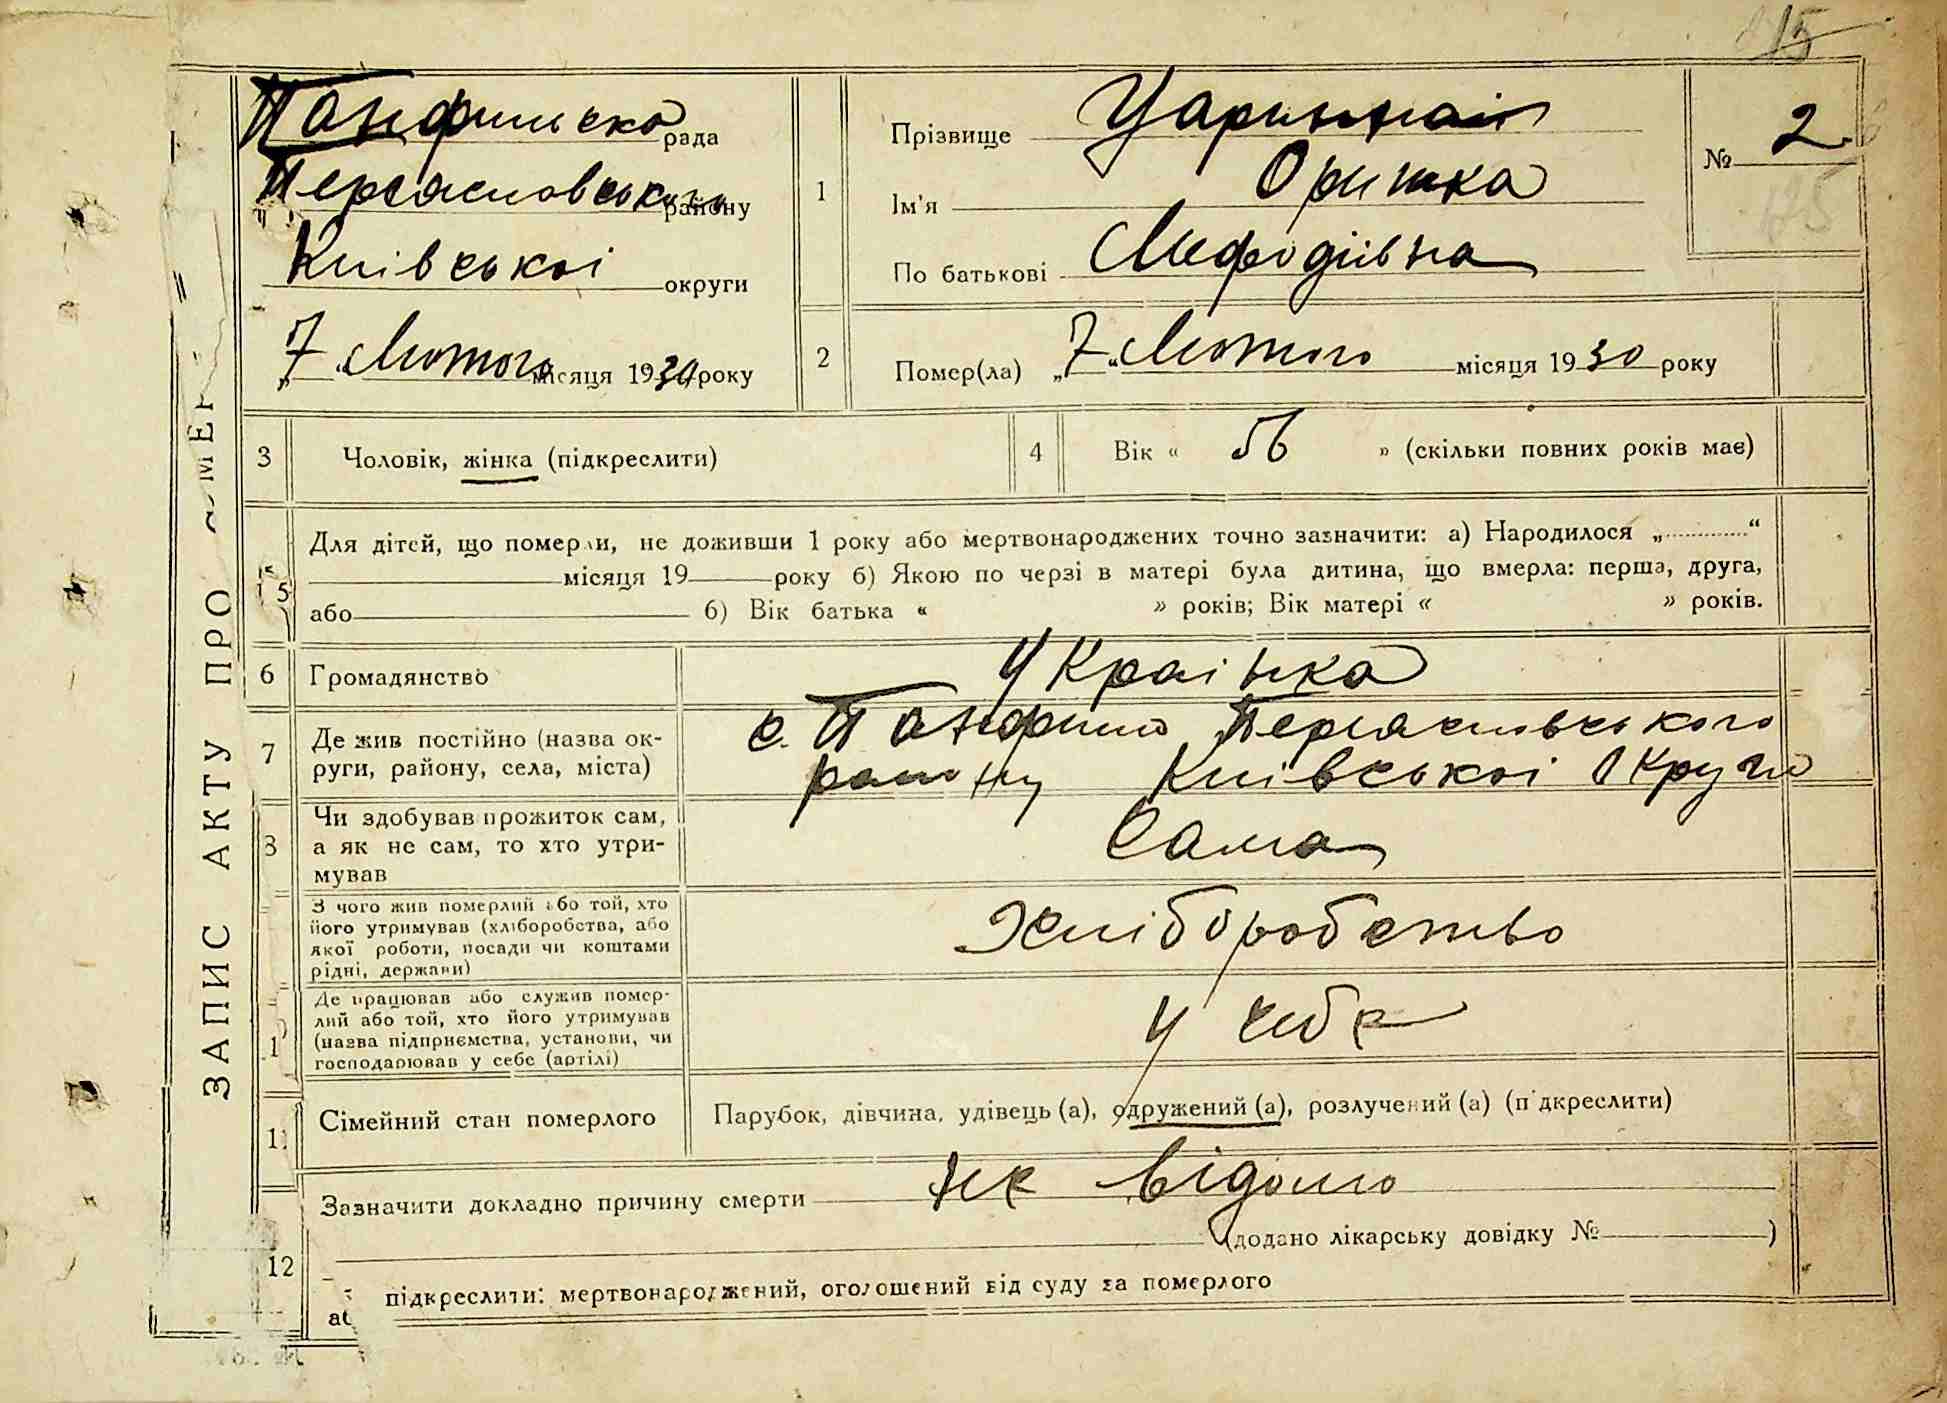 15
Панфильска рада
Переяславського району
Київської округи
„7“ Лютого місяця 1930 року
1
Прізвище
Ім'я Оришка
По батькові Мефодіївна
№ 2
175
2
Помер(ла) „7“ Лютого місяця 1930 року
3
Чоловік, жінка (підкреслити)
4
Вік « 56 » (скільки повних років має)
5
Для дітей, що померли, не доживши 1 року або мертвонароджених точно зазначити: а) Народилося „............“
місяця 19 року б) Якою по черзі в матері була дитина, що вмерла: перша, друга,
або б) Вік батька « » років; Вік матері « » років.
6
Громадянство Українка
7
Де жив постійно (назва ок-
руги, району, села, міста)
с. Панфили Переяславського
району Київської Округи
8
Чи здобував прожиток сам,
а як не сам, то хто утри-
мував
Сама
З чого жив померлий або той, хто
його утримував (хліборобства, або
якої роботи, посади чи коштами
рідні, держави)
Хліборобство
1
Де працював або служив помер-
лий або той, хто його утримував
(назва підприємства, установи, чи
господарював у себе (артілі)
У себе
11
Сімейний стан померлого
Парубок, дівчина, удівець (а), одружений (а), розлучений (а) (підкреслити)
12
Зазначити докладно причину смерти не відомо
(додано лікарську довідку № )
підкреслити: мертвонароджений, оголошений від суду за померлого
ЗАПИС АКТУ ПРО СМЕР